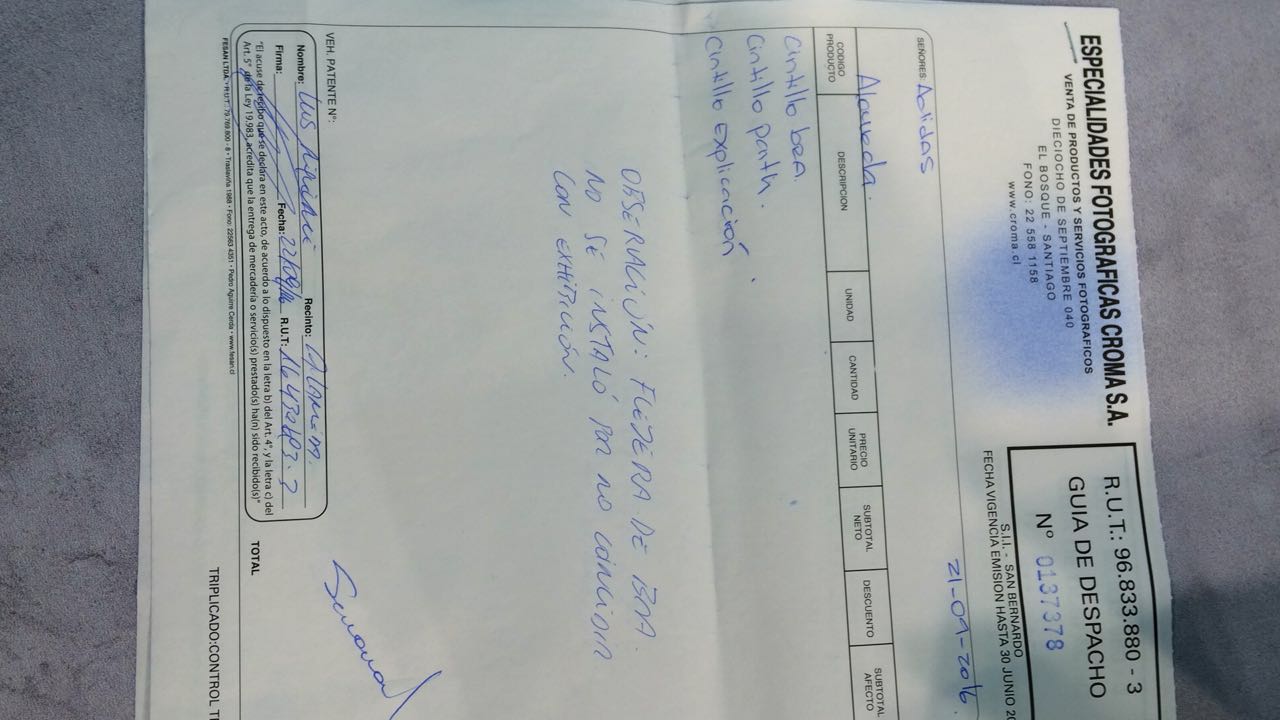 ESPECIALIDADES FOTOGRAFICAS CROMA S.A.
VENTA DE PRODUCTOS Y SERVICIOS FOTOGRAFICOS
DIECIOCHO DE SEPTIEMBRE 040
EL BOSQUE - SANTIAGO
FONO: 22 558 1158
www.croma.cl
R.U.T.: 96.833.880 - 3
GUIA DE DESPACHO
Nº 0137378
S.I.I. - SAN BERNARDO
FECHA VIGENCIA EMISION HASTA 30 JUNIO 20
21-09-2016.
SEÑORES: Adidas
CODIGO PRODUCTO DESCRIPCION UNIDAD CANTIDAD PRECIO UNITARIO SUBTOTAL NETO DESCUENTO SUBTOTAL AFECTO
Alameda.
Cintillo bra.
Cintillo panth.
Cintillo explicación.
OBSERVACIÓN: FLEJERA DE BRA.
NO SE INSTALÓ POR NO COINCIDIR
CON EXHIBICIÓN.
VEH. PATENTE Nº:
Nombre: Luis Recinto:
Firma: Fecha: R.U.T: 16.432.403-7
"El acuse de recibo que se declara en este acto, de acuerdo a lo dispuesto en la letra b) del Art. 4º, y la letra c) del
Art. 5º de la Ley 19.983, acredita que la entrega de mercadería o servicio(s) prestado(s) ha(n) sido recibido(s)"
FESAN LTDA. • R.U.T.: 79.769.800 - 6 • Traslaviña 1988 • Fono: 22563 4351 • Pedro Aguirre Cerda • www.fesan.cl
TOTAL
TRIPLICADO:CONTROL TR